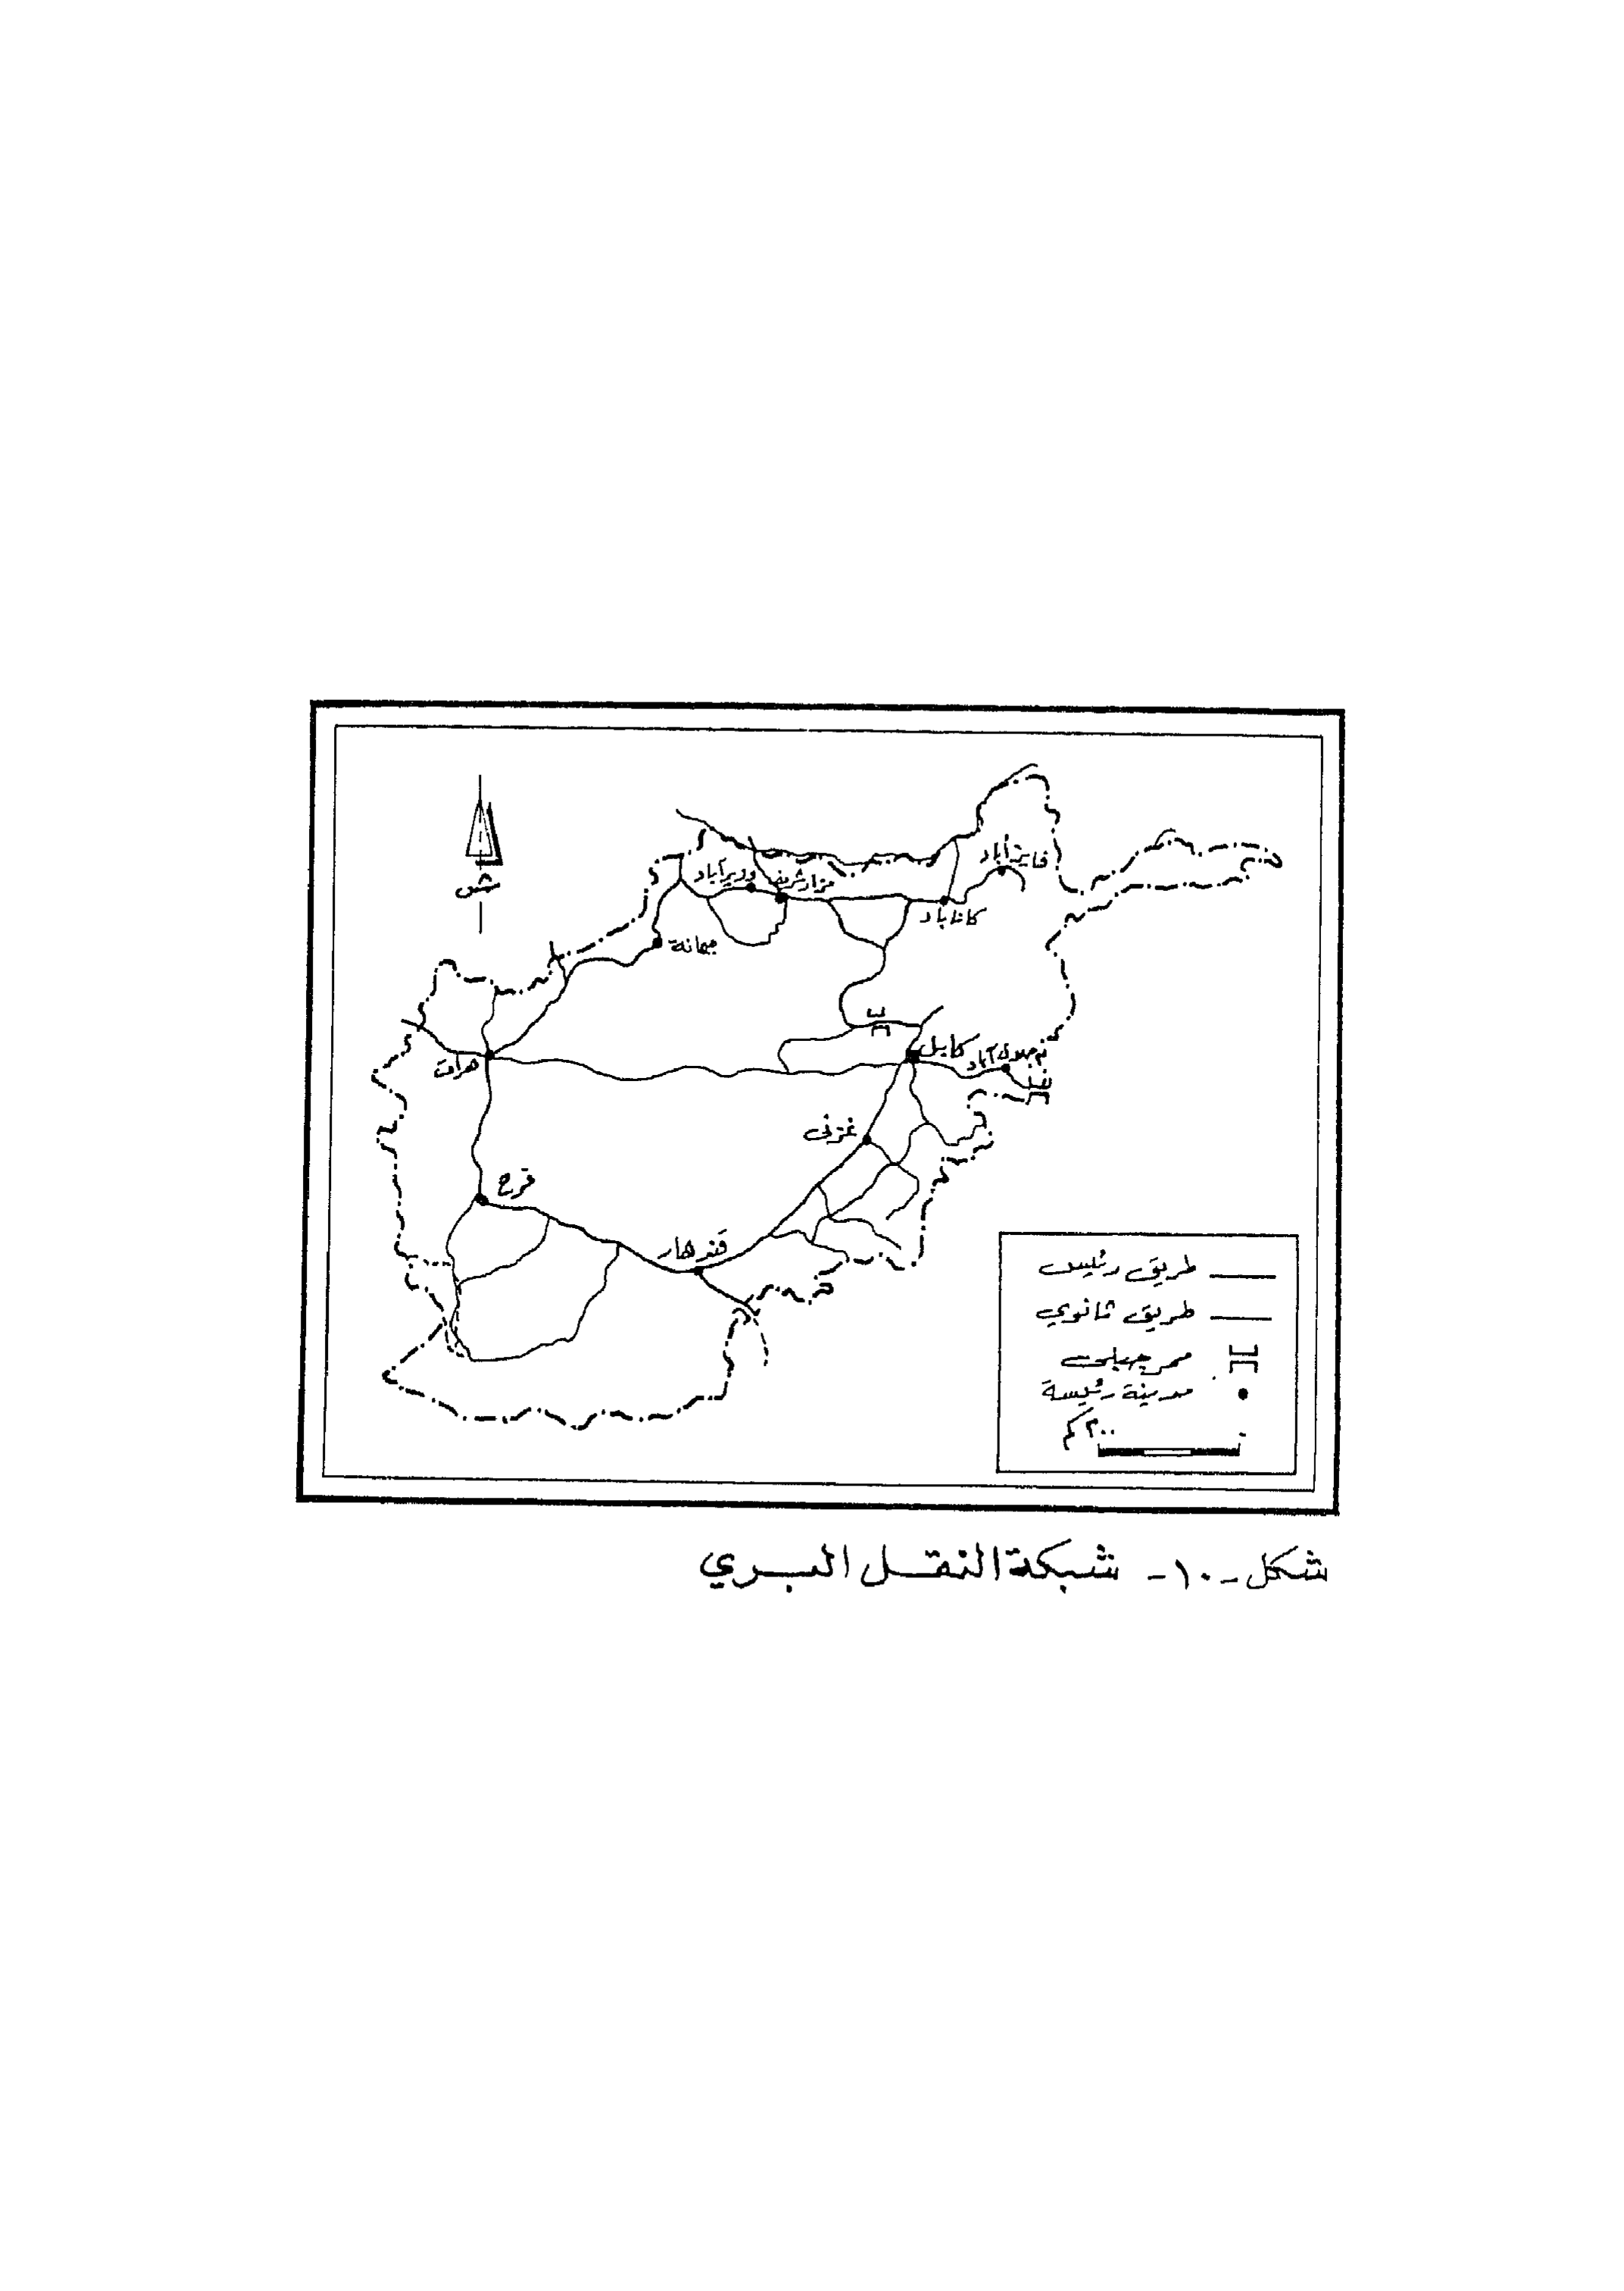 فايزآباد
وزيرآباد
مزار شريف
كاناباد
ش
ميمانة
كابل
جلال آباد
هرات
غزني
فرح
قندهار
طريق رئيس
طريق ثانوي
ممر جبلي
مدينة رئيسة
٠ ٢٠٠ كم
شكل -١٠- شبكة النقل البري